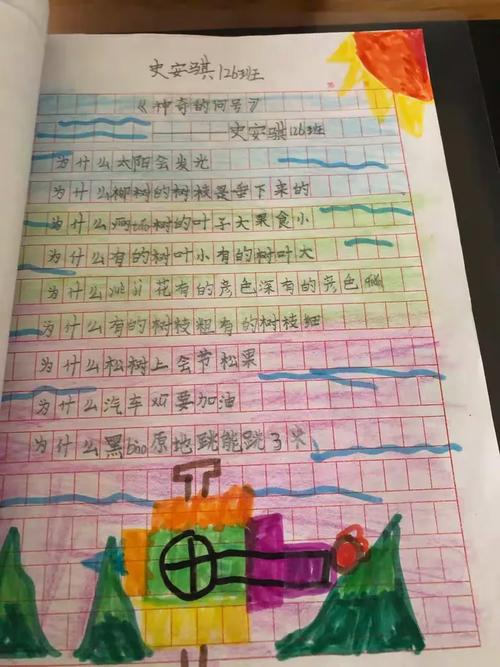 史安骐126班
《神奇的问号》
——史安骐126班
为什么太阳会发光
为什么柳树的树枝是垂下来的
为什么树的叶子大果食小
为什么有的树叶小有的树叶大
为什么花有的彦色深有的彦色
为什么有的树枝粗有的树枝细
为什么松树上会节松果
为什么汽车要加油
为什么黑bào原地跳能跳3米